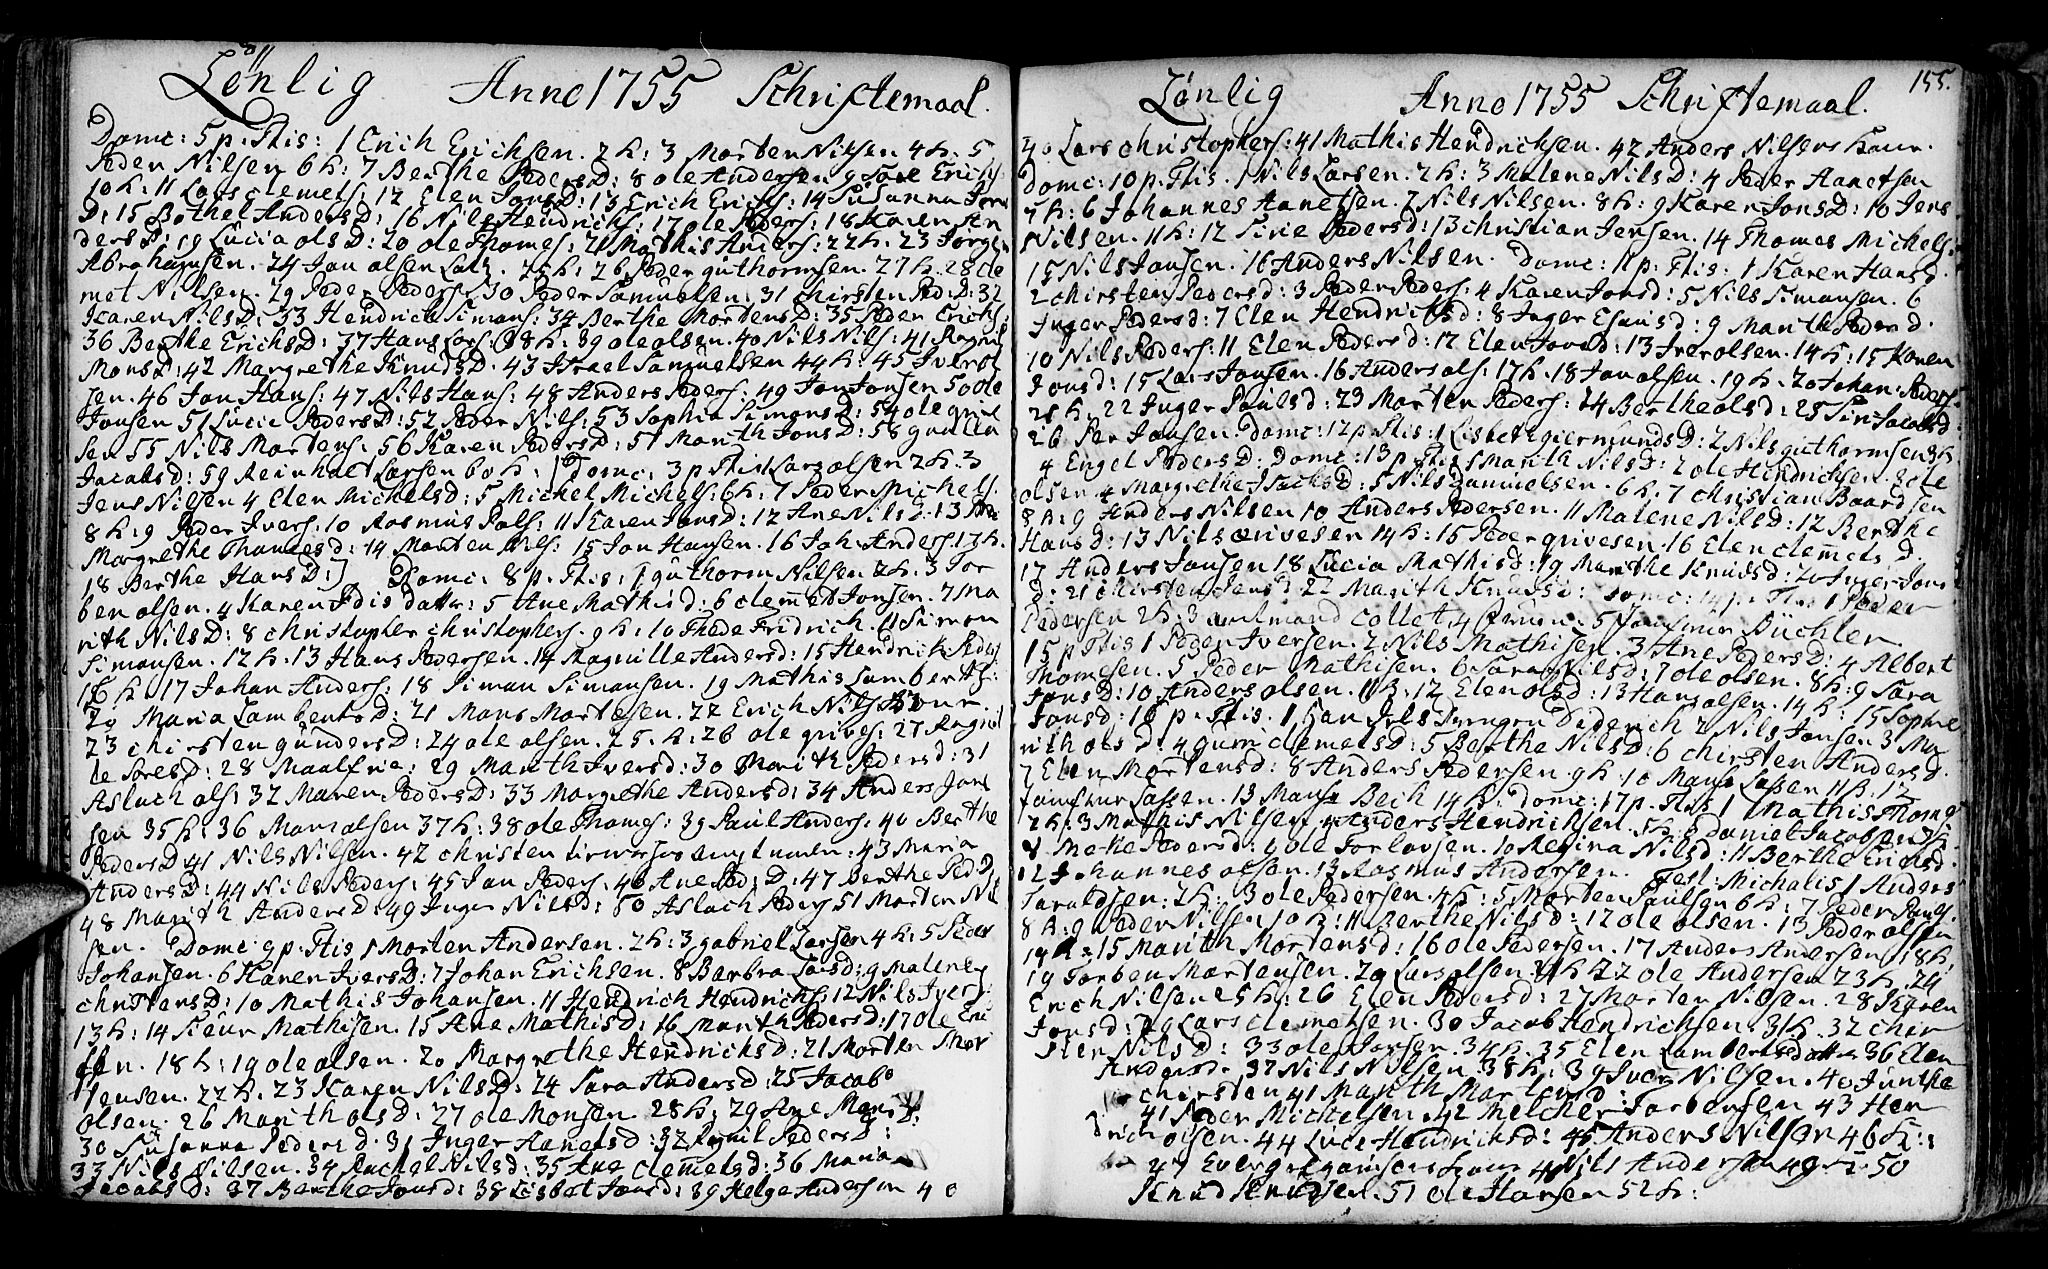 Lönlig Anno 1755 Schriftemaal.
Domc: 5 p. Ftis: 1 Erich Erichsen. 2 K: 3 Morten Nilsen. 4 K. 5
Peder Nilsen 6 K: 7 Berthe PedersD: 8 ole Andersen 9 Tore Erichs:
10 K: 11 Lars Clemets: 12 Elen JonsD: 13 Erich Erichs: 14 Susanna Jons
D: 15 Bothel AndersD: 16 Nils Hendrichs: 17 ole Peders: 18 Karen An
dersD: 19 Lucia olsD: 20 ole Thomes: 21 Mathis Anders: 22 K: 23 Jorgen
Abrahamsen. 24 Jan olsen Latz. 25 K: 26 Peder guthormsen. 27 K. 28 Cle
met Nilsen. 29 Peder Peders: 30 Peder Samuelsen: 31 Chirsten Ped:D: 32
Karen NilsD: 33 Hendrich Simons: 34 Berthe MortensD: 35 Peder Erichs:
36 Berthe ErichsD: 37 Hans Lars: 38 K: 39 ole olsen. 40 Nils Nils: 41 Ragnil
MonsD: 42 Margrethe KnudsD. 43 Israel Samuelsen 44 K: 45 Iver ol
sen. 46 Jon Hans: 47 Nils Hans: 48 Anders Peders: 49 Jon Jonsen 50 ole
Jonsen 51 Lucie PedersD: 52 Peder Nils: 53 Sophia SimonsD: 54 ole grue
sen 55 Nils Mortens: 56 Karen PedersD: 57 Marith JonsD: 58 gunilla
Jacobsd: 59 Reinholt Larsen 60 K: [Domc: 3 p Ftis 1 Lars olsen 2 K. 3
Jens Nilsen 4 Elen Michelsd: 5 Michel Michels: 6 K: 7 Peder Michels.
8 K: 9 Peder Ivers. 10 Rasmus Pols: 11 Karen JonsD: 12 Ane NilsD. 13
Margrethe Thomesd: 14 Morten Nils: 15 Jon Hansen. 16 Joh: Anders: 17 K.
18 Berthe HansD:] Domc: 8 p. Ftis: 1 guthorm Nilsen 2 K. 3 Tor
ben olsen. 4 Karen Idis datter: 5 Ane Mathisd: 6 Clemet Jonsen. 7 Ma
rith NilsD: 8 Christopher Christophers. 9 K: 10 Thede Fridrich. 11 Simon
Simonsen. 12 K. 13 Hans Pedersen. 14 Magnille Andersd: 15 Hendrich Peders
16 K 17 Johan Anders: 18 Simon Simonsen. 19 Mathis Lamberts:
20 Maria Lambertsd: 21 Mons Mortesen. 22 Erich Nils Kone.
23 Chirsten gundersD: 24 ole olsen. 25. K: 26 ole grives: 27 Ragnil
le ToresD: 28 Maalfrie: 29 Marith Iversd: 30 Marith Pedersd: 31
Aslach ols: 32 Maren PedersD: 33 Margrethe Andersd: 34 Anders Jon
sen 35 K: 36 Mons olsen 37 K: 38 ole Thomes: 39 Paul Anders: 40 Berthe
PedersD 41 Nils Nilsen. 42 Christen : 43 Maria
AndersD: 44 Nils Peders: 45 Jan Peders: 46 Ane Ped:D: 47 Berthe Ped:D
48 Marith AndersD: 49 Inger Nilsd: 50 Aslach Peders 51 Morten Nil
sen. Domc: 9 p. Ftis 1 Morten Andersen. 2 K: 3 gabriel Larsen 4 K: 5 Peder
Johansen. 6 Karen IversD: 7 Johan Erichsen. 8 Barbra Larsd: 9 Malene
ChristensD: 10 Mathis Johansen. 11 Hendrich Hendrichs: 12 Nils Ivers:
13 K: 14 Siur Mathisen. 15 Ane MathisD: 16 Marith Pedersd: 17 ole Eri
sen. 18 K: 19 ole olsen. 20 Margrethe HendricksD: 21 Morten Mor
tensen. 22 K. 23 Karen NilsD: 24 Sara Andersd: 25 Jacob
olsen. 26 Marith olsD: 27 ole Monsen. 28 K: 29 Ane MonsD:
30 Susanna PedersD. 31 Inger Aanetsd: 32 Ragnil PedersD:
33 Nils Nilsen. 34 Rachel Nilsd: 35 Ane Clemetsd: 36 Maria
JacobsD: 37 Berthe Jonsd: 38 Lisbet Jonsd: 39 Helge Andersen 40
155.
Lönlig Anno 1755 Schriftemaal.
40 Lars Christophers: 41 Mathis Hendrichsen. 42 Anders Nilsens Kone.
Domc: 10 p. Ftis. 1 Nils Larsen. 2 K: 3 Malene NilsD: 4 Peder Aanetsen
5 K: 6 Johannes Aanetsen. 7 Nils Nilsen. 8 K: 9 Karen JonsD: 10 Jens
Nilsen. 11 K: 12 Sirie Pedersd: 13 Christian Jensen. 14 Thomes Michels.
15 Nils Jonsen. 16 Anders Nilsen. Domc: 11 p: Ftis: 1 Karen Hansd.
2 Chirsten Pedersd: 3 Peder Peders: 4 Karen Jonsd: 5 Nils Simonsen. 6
Inger Pedersd: 7 Elen Hendrichsd: 8 Inger Esaiisd: 9 Marith PedersD.
10 Nils Peders: 11 Elen Pedersd: 12 Elen Jonsd: 13 Iver olsen. 14 K: 15 Karen
Jonsd: 15 Lars Jonsen. 16 Anders ols: 17 K. 18 Jon olsen. 19 K. 20 Johan: Peders.
21 K. 22 Inger Poulsd: 23 Morten Peders: 24 Berthe olsd: 25 Siri Jacobsd:
26 Per Jonsen Domc: 12 p. Ftis: 1 Lisbet giermundsD: 2 Nils guthormsen 3 K
4 Engel PedersD: Domc: 13 p. Ftis 1 Marith NilsD: 2 ole Hindrichsen. 3 ole
olsen. 4 Margrethe IsachsD: 5 Nils Samuelsen. 6 K: 7 Christian Baardsen
8 K: 9 Anders Nilsen 10 Anders Pedersen. 11 Malene NilsD: 12 Berthe
HansD: 13 Nils grivesen 14 K: 15 Peder grivesen. 16 Elen ClemetsD.
17 Anders Jonsen 18 Lucia Mathisd: 19 Marithe Knudsd: 20 Inger Jons
D: 21 Chirsten Jensd 22 Marith Knudsd: Domc: 14 p: Ftis 1 Peder
Pedersen 2 K: 3 Amtmand Collet. 4 fruen: 5 Jomfrur Büchler
15 p Ftis 1 Peder Iversen. 2 Nils Mathisen. 3 Ane PedersD: 4 Albert
Thomesen. 5 Peder Mathisen. 6 Sara Nilsd: 7 ole olsen. 8 K: 9 Sara
JonsD: 10 Anders olsen. 11 K: 12 Elen olsd: 13 Hans olsen. 14 K: 15 Sophie
Jonsd: 16 p. Ftis. 1 Diderich 2 Nils Jonsen 3 Ma
rith olsD: 4 Guri ClemetsD: 5 Berthe NilsD: 6 Chirsten Andersd.
7 Elen Mortensd: 8 Anders Pedersen. 9 K: 10 Mons: Lassen 11 K. 12
Jomfrur Lassen. 13 Mons: Bech 14 K: Domc: 17 p. Ftis 1 Mathis Thomes
2 K: 3 Mathis Nilsen 4 Anders Hendrichsen. 5 K: 6 Daniel Jacobsen 7 K:
8 Mathe Pedersd: 9 ole Torlavsen. 10 Regina Nilsd: 11 Berthe Erichsd.
12 Johannes olsen. 13 Rasmus Andersen. Fest: Michalis 1 Anders
Taraldsen: 2 K. 3 ole Pedersen. 4 K: 5 Morten Paulsen 6 K: 7 Peder Pauls.
8 K: 9 Peder Nilsen 10 K: 11 Berthe Nilsd: 12 ole olsen. 13 Peder olsen
14 K: 15 Marith MortensD: 16 ole Pedersen. 17 Anders Andersen 18 K.
19 Torben Mortensen. 20 Lars olsen 21 K 22 ole Andersen 23 K: 24
Erich Nilsen 25 K: 26 Elen Pedersd: 27 Morten Nilsen. 28 Karen
Jonsd: 29 Lars Clemetsen. 30 Jacob Hendrichsen. 31 K. 32 Chir
sten NilsD: 33 ole Jonsen. 34 K. 35 Elen Lambertsdatter 36 Elen
Andersd. 37 Nils Nilsen. 38 K: 39 Iver Nilsen. 40 Junthe
Chirsten 41 Marith Mortensd:
41 Peder Michelsen. 42 Melcher Torbensen 43 Hen
drich olsen. 44 Luce Hendrichsd: 45 Anders Nilsen 46 K:
47 Kone 48 Nils Andersen 49 K 50
Knud Knudsen. 51 ole Hansen 52 K: